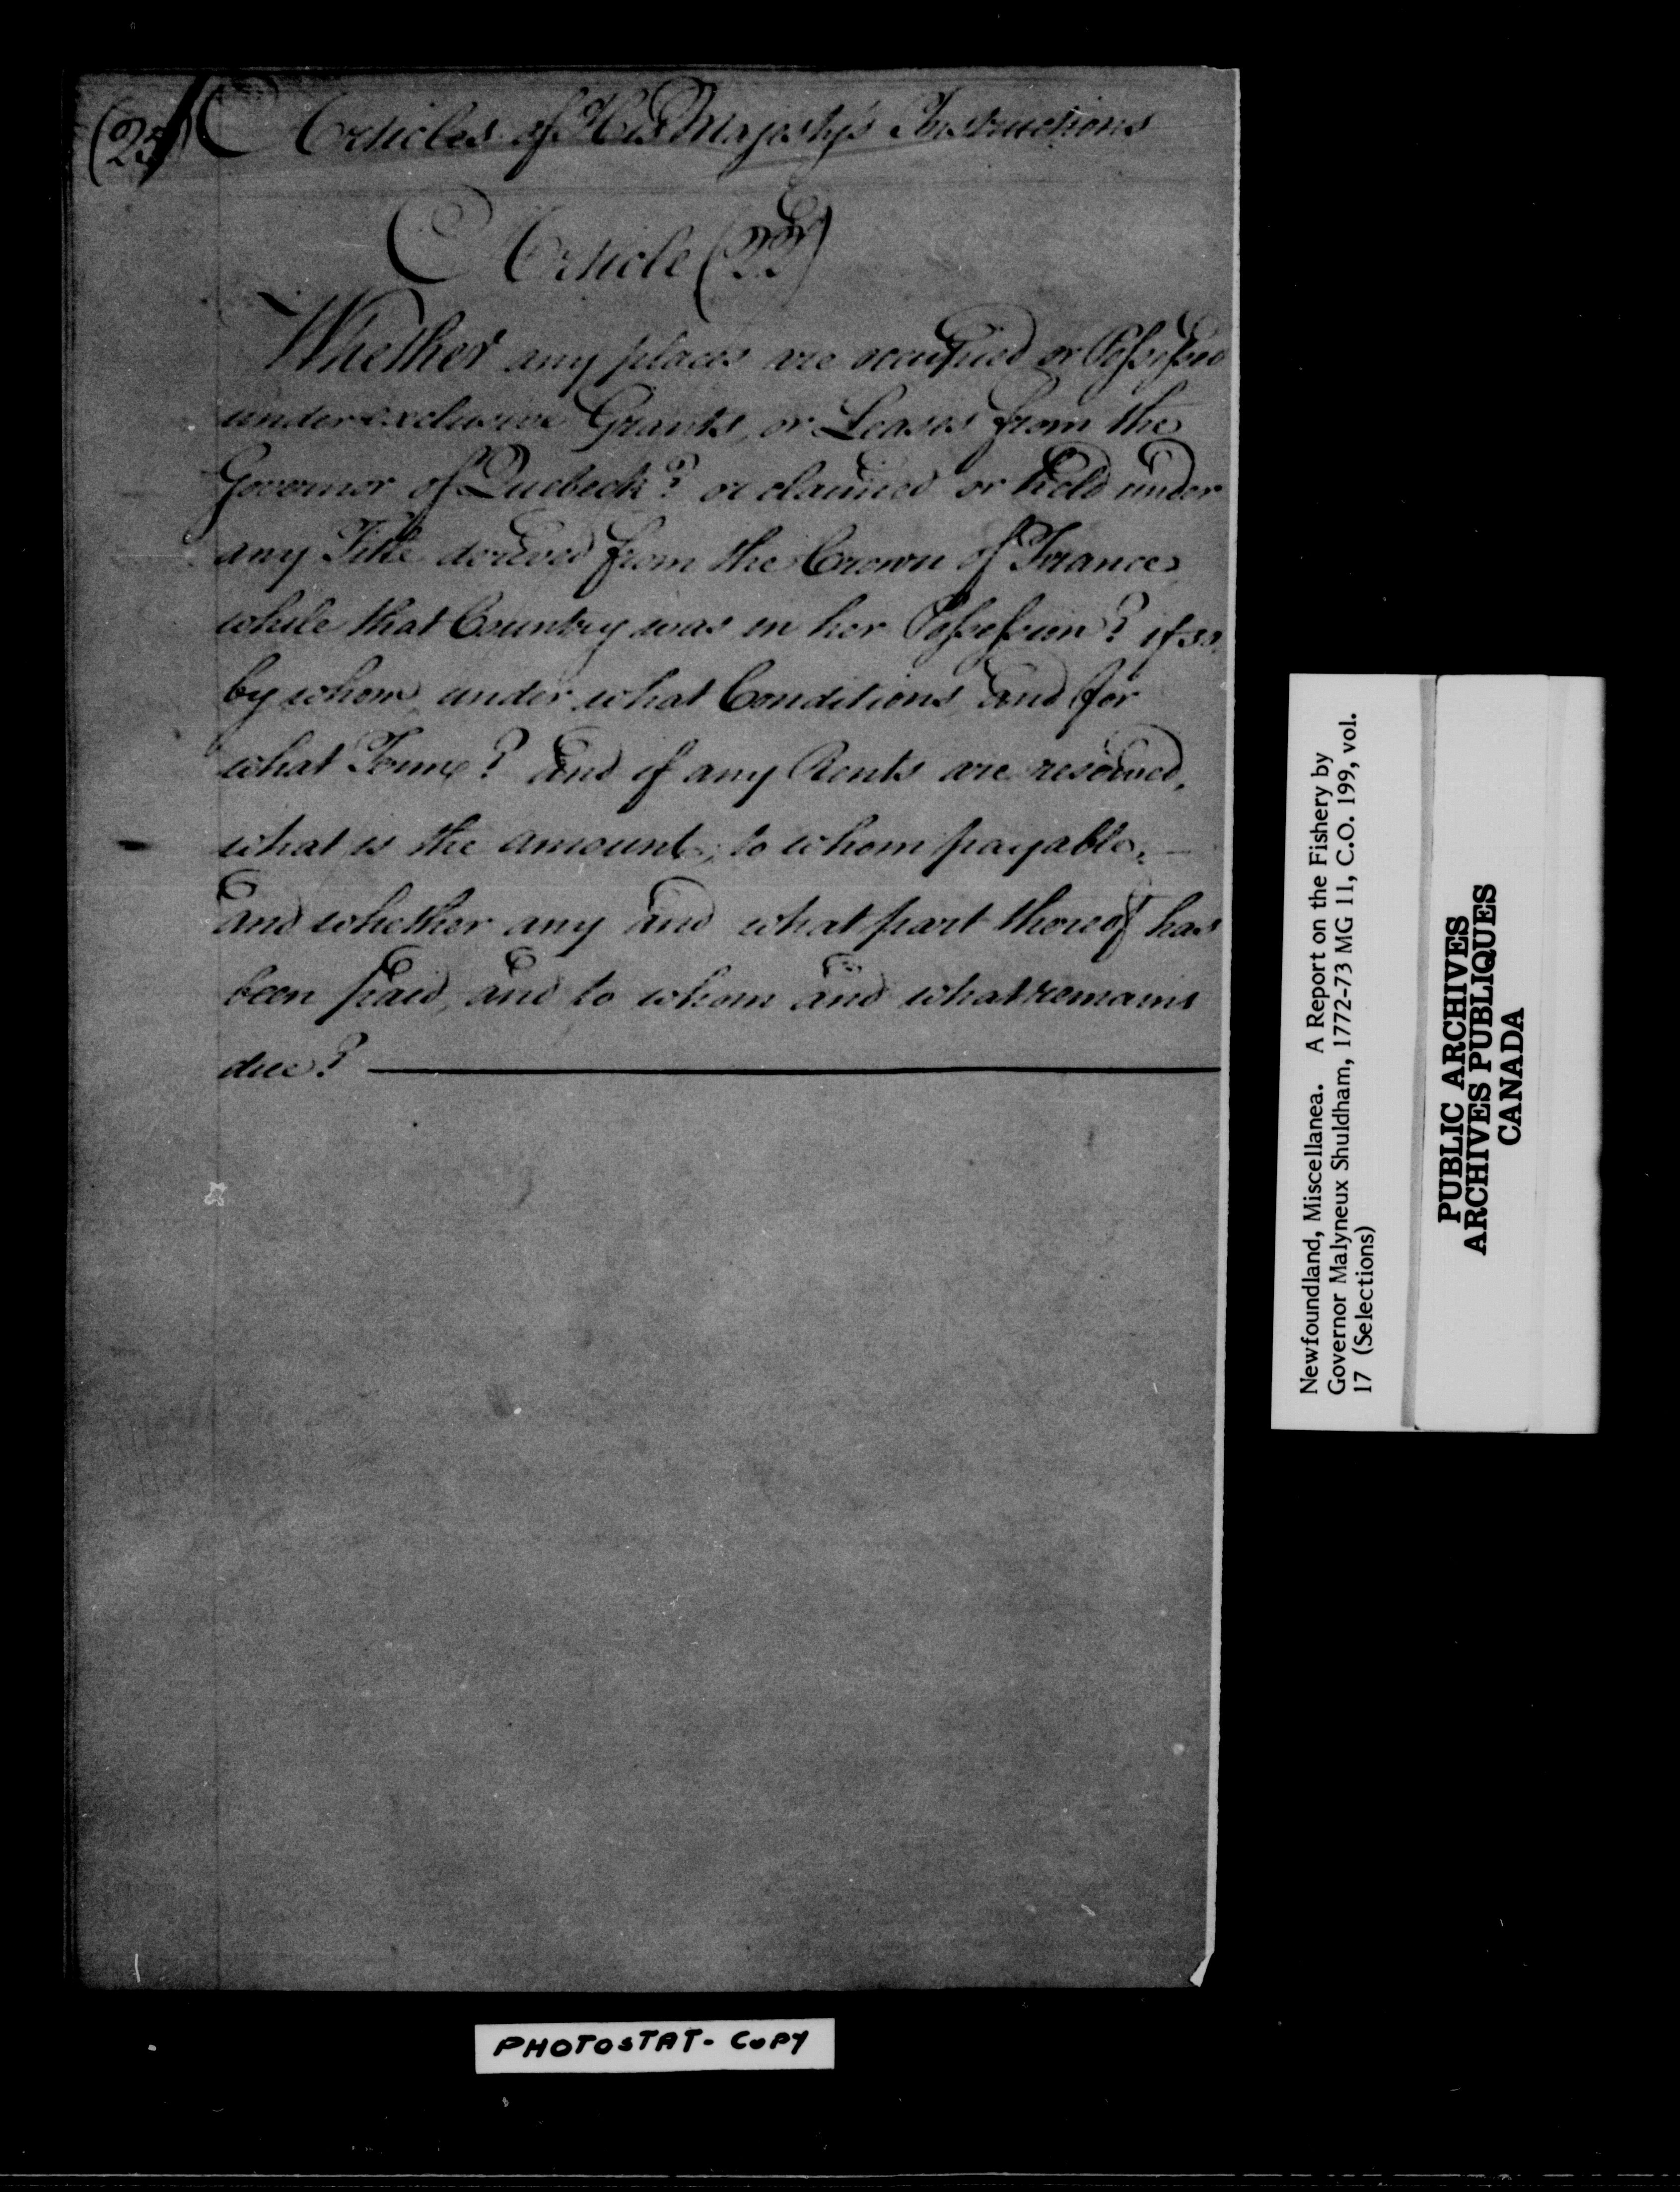 (25)
Articles of His Majesty's Instructions
Article (22d)
Whether any places are occupied or Possessed
under exclusive Grants, or Leases from the
Governor of Quebeck? or claimed or held under
any Title derived from the Crown of France
while that Country was in her Possession? if so,
by whom under what Conditions, and for
what Terme? and if any Rents are reserved,
what is the amount, to whom payable, —
and whether any and what part thereof has
been paid, and to whom and what remains
due?
Newfoundland, Miscellanea. A Report on the Fishery by
Governor Malyneux Shuldham, 1772-73 MG 11, C.O. 199, vol.
17 (Selections)
PUBLIC ARCHIVES
ARCHIVES PUBLIQUES
CANADA
PHOTOSTAT- COPY